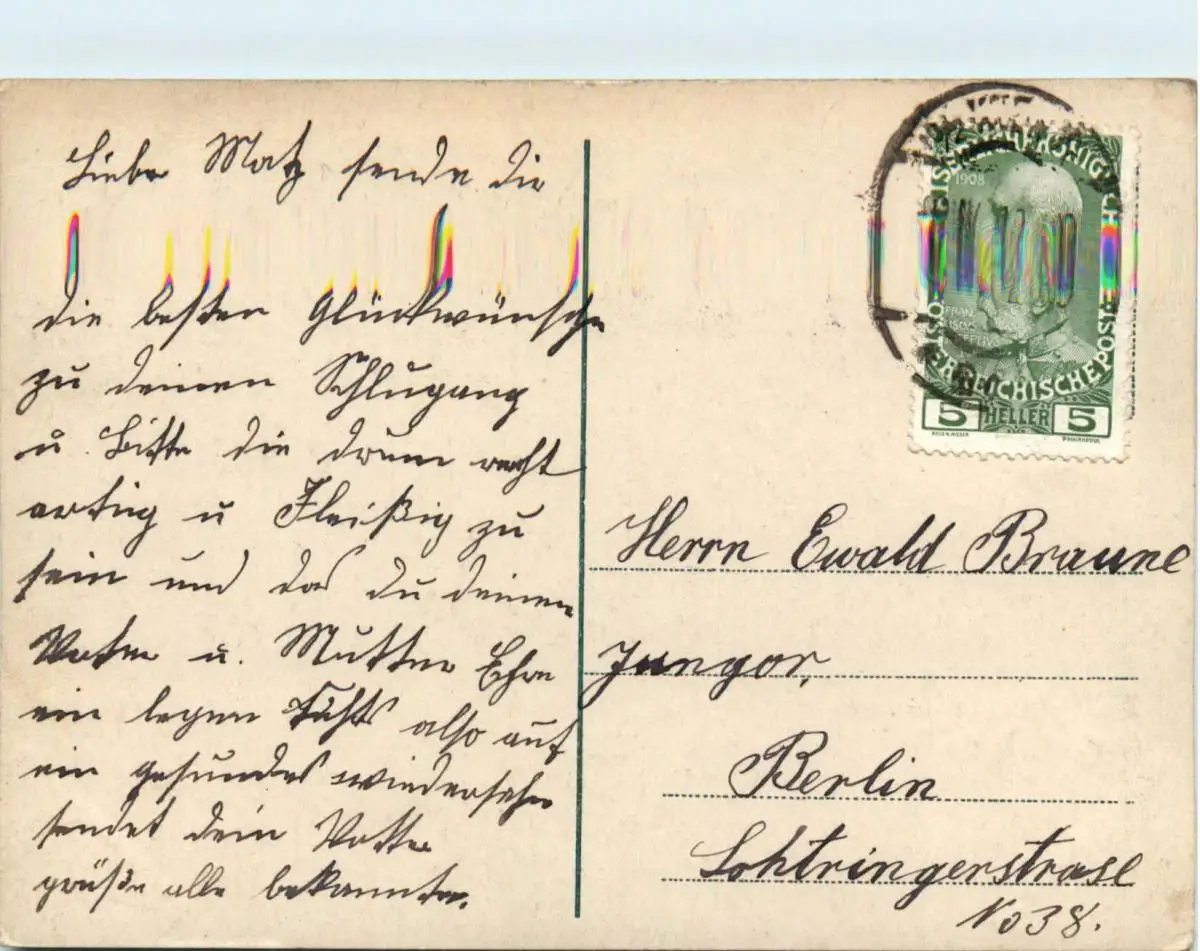 Lieber Matz sende die
die besten Glückwünsche
zu deinen Schlugang
u. Bitte die drum recht
artig u Fleißig zu
sein und das du deinen
Vater u. Mutter Ehre
ein legen also auf
ein gesundes wiedersehn
sendet dein Vatter
grüße alle bekannten.
1908
FRAN
CISCVS
OSTERREICHISCHE POST
5 HELLER 5
Herrn Ewald Braune
Jungor,
Berlin
Lohtringerstrase
No 38.